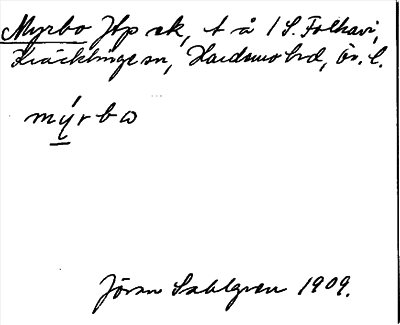 Myrbo Jtp sk, t å / S. Folkavi,
Kräcklinge sn, Hardemo hd, Ör. l.
mýrbω
Jöran Sahlgren 1909.